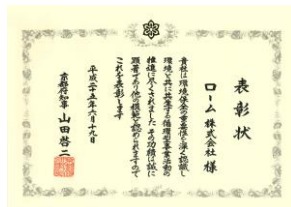 表彰状
ローム 株式会社 様
貴社は環境保全の重要性を深く認識し
環境と共に共生する循環型事業活動の
推進に尽くされました その功績は誠に
顕著であり他の模範と認められますので
これを表彰します
平成二十五年六月十九日
京都府知事 山田啓二